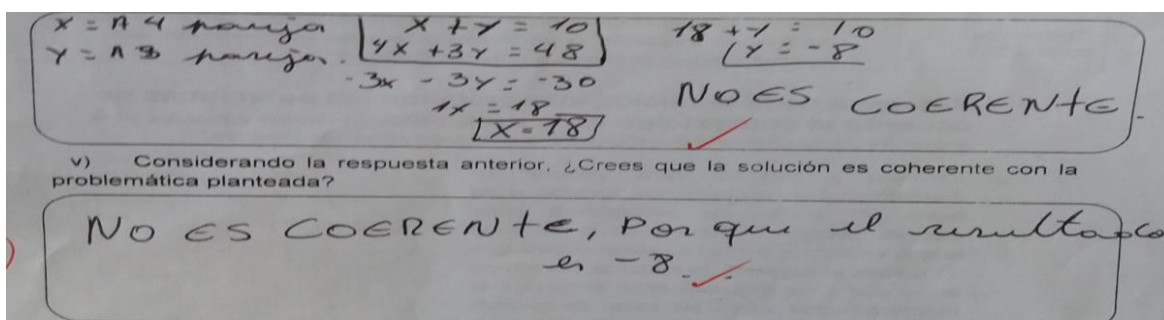 x = n 4 pareja x + y = 10 18 + y = 10
y = n 3 pareja. 4x + 3y = 48 y = -8
-3x - 3y = -30
1x = 18 NO ES COERENTE.
x = 18
v) Considerando la respuesta anterior, ¿Crees que la solución es coherente con la
problemática planteada?
NO ES COERENTE, Por que el resultado
es -8.